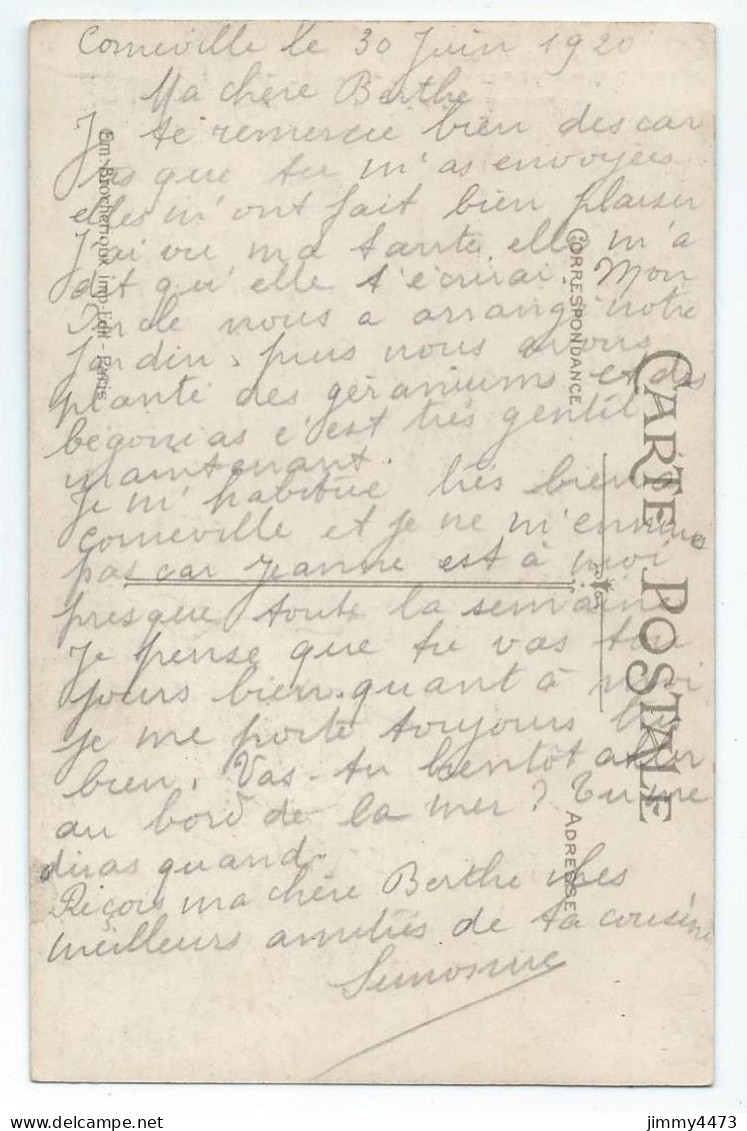 Corneville le 30 Juin 1920
Ma chère Berthe
Je te remercie bien des car
tes que tu m'as envoyées
elles m'ont fait bien plaisir
J'ai vu ma tante, elle m'a
dit qu'elle t'écrirai. Mon
Oncle nous a arrangé notre
Jardin, puis nous avons
planté des géraniums et des
begonias c'est très gentil
maintenant.
Je m'habitue très bien à
Corneville et je ne m'ennuie
pas car Jeanne est à moi
presque toute la semaine
Je pense que tu vas tou
jours bien, quant à moi
je me porte toujours très
bien. Vas-tu bientôt aller
au bord de la mer? Tu me
diras quand.
Reçois ma chère Berthe mes
meilleurs amitiés de ta cousine
Simonne
Em. Brocherioux imp-Edit - Paris
CORRESPONDANCE
CARTE POSTALE
ADRESSE
jimmy4473